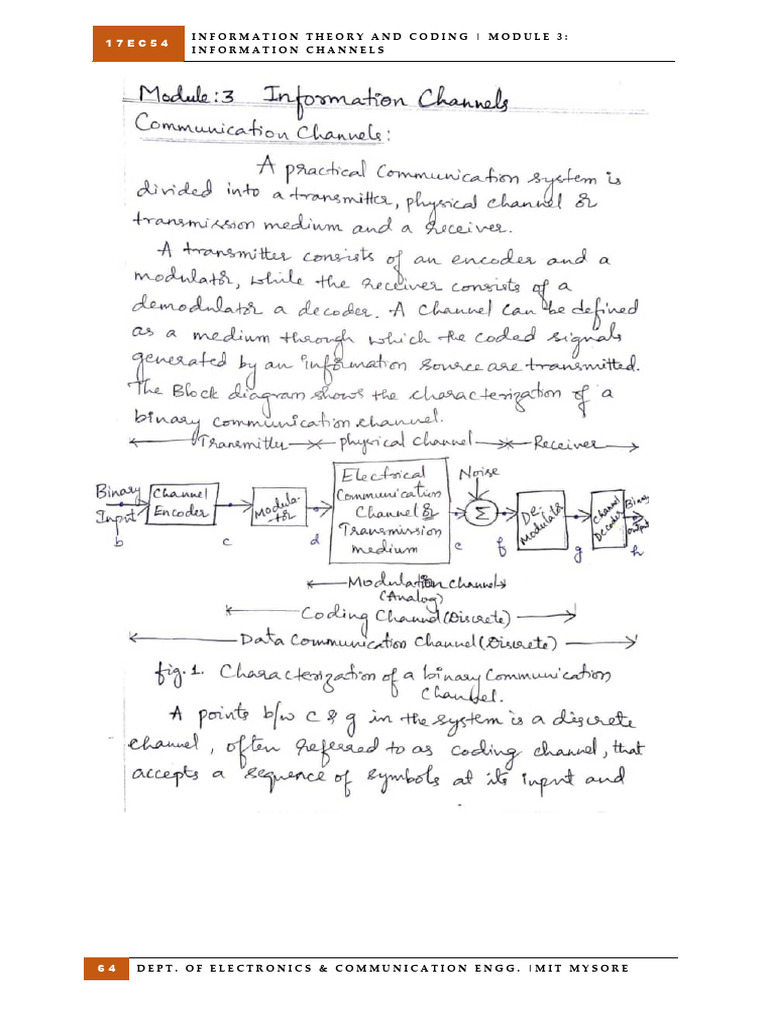 17EC54
INFORMATION THEORY AND CODING | MODULE 3:
INFORMATION CHANNELS
Module:3 Information Channels
Communication Channels:
A practical communication system is
divided into a transmitter, physical channel or
transmission medium and a receiver.
A transmitter consists of an encoder and a
modulator, while the receiver consists of a
demodulator a decoder. A channel can be defined
as a medium through which the coded signals
generated by an information source are transmitted.
The Block diagram shows the characterization of a
binary communication channel.
Transmitter physical channel Receiver
Binary Input
b
Channel Encoder
c
Modula-tor
d
Electrical
Communication
Channel or
Transmission
medium
Noise
e
Σ
f
De-Modulator
g
Channel Decoder
Binary output
h
Modulation Channel
(Analog)
Coding Channel (Discrete)
Data Communication Channel (Discrete)
fig.1. Characterization of a binary communication
channel.
A points b/w c & g in the system is a discrete
channel, often referred to as coding channel, that
accepts a sequence of symbols at its input and
64
DEPT. OF ELECTRONICS & COMMUNICATION ENGG. |MIT MYSORE